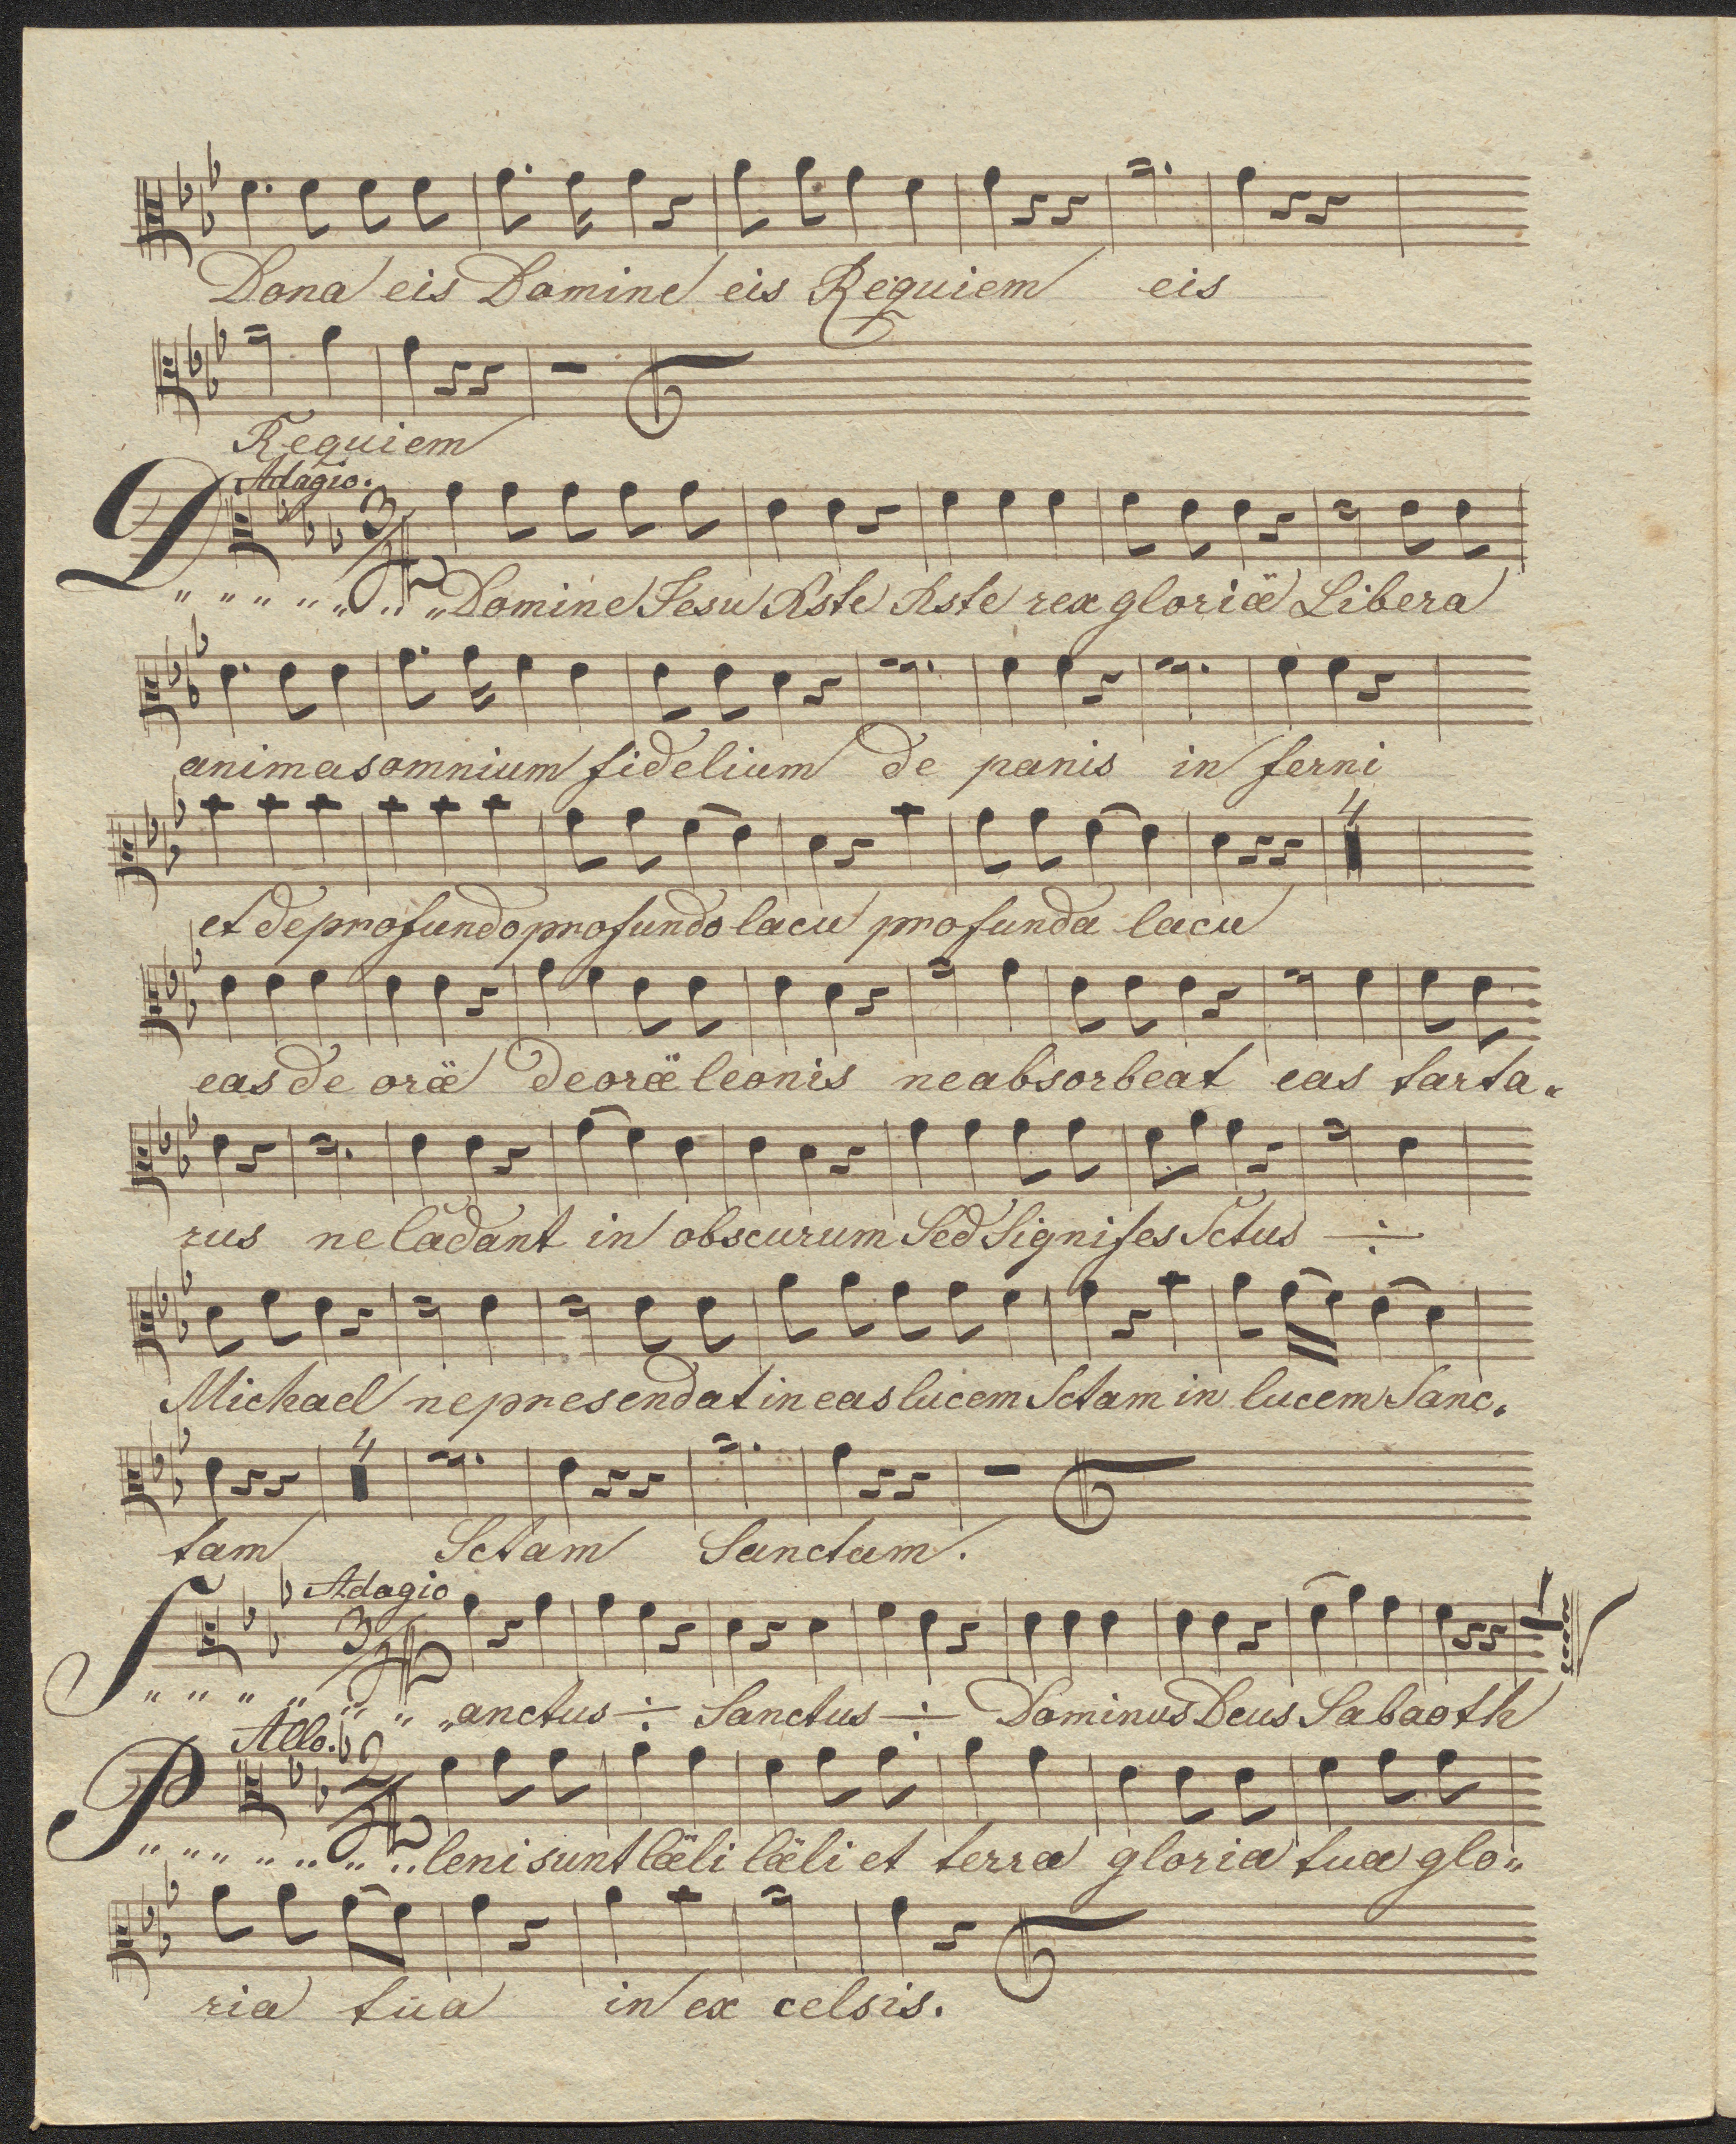 Dona eis Domine eis Requiem eis
Requiem
Adagio.
D 3/4 Domine Jesu Xste Xste rex gloriæ Libera
animas omnium fidelium de panis in ferni
4
et de profundo profundo lacu profunda lacu
eas de oræ de oræ leonis ne absorbeat eas tarta„
rus ne cadant in obscurum Sed Signifes Sctus ÷
Michael nepresendat in eas lucem Sctam in lucem Sanc„
4
tam Sctam Sanctam.
Adagio
S 3/4 „anctus ÷ Sanctus ÷ Dominus Deus Sabaoth
Allo.
P 2/4 leni sunt cæli cæli et terra gloria tua glo„
ria tua in ex celsis.